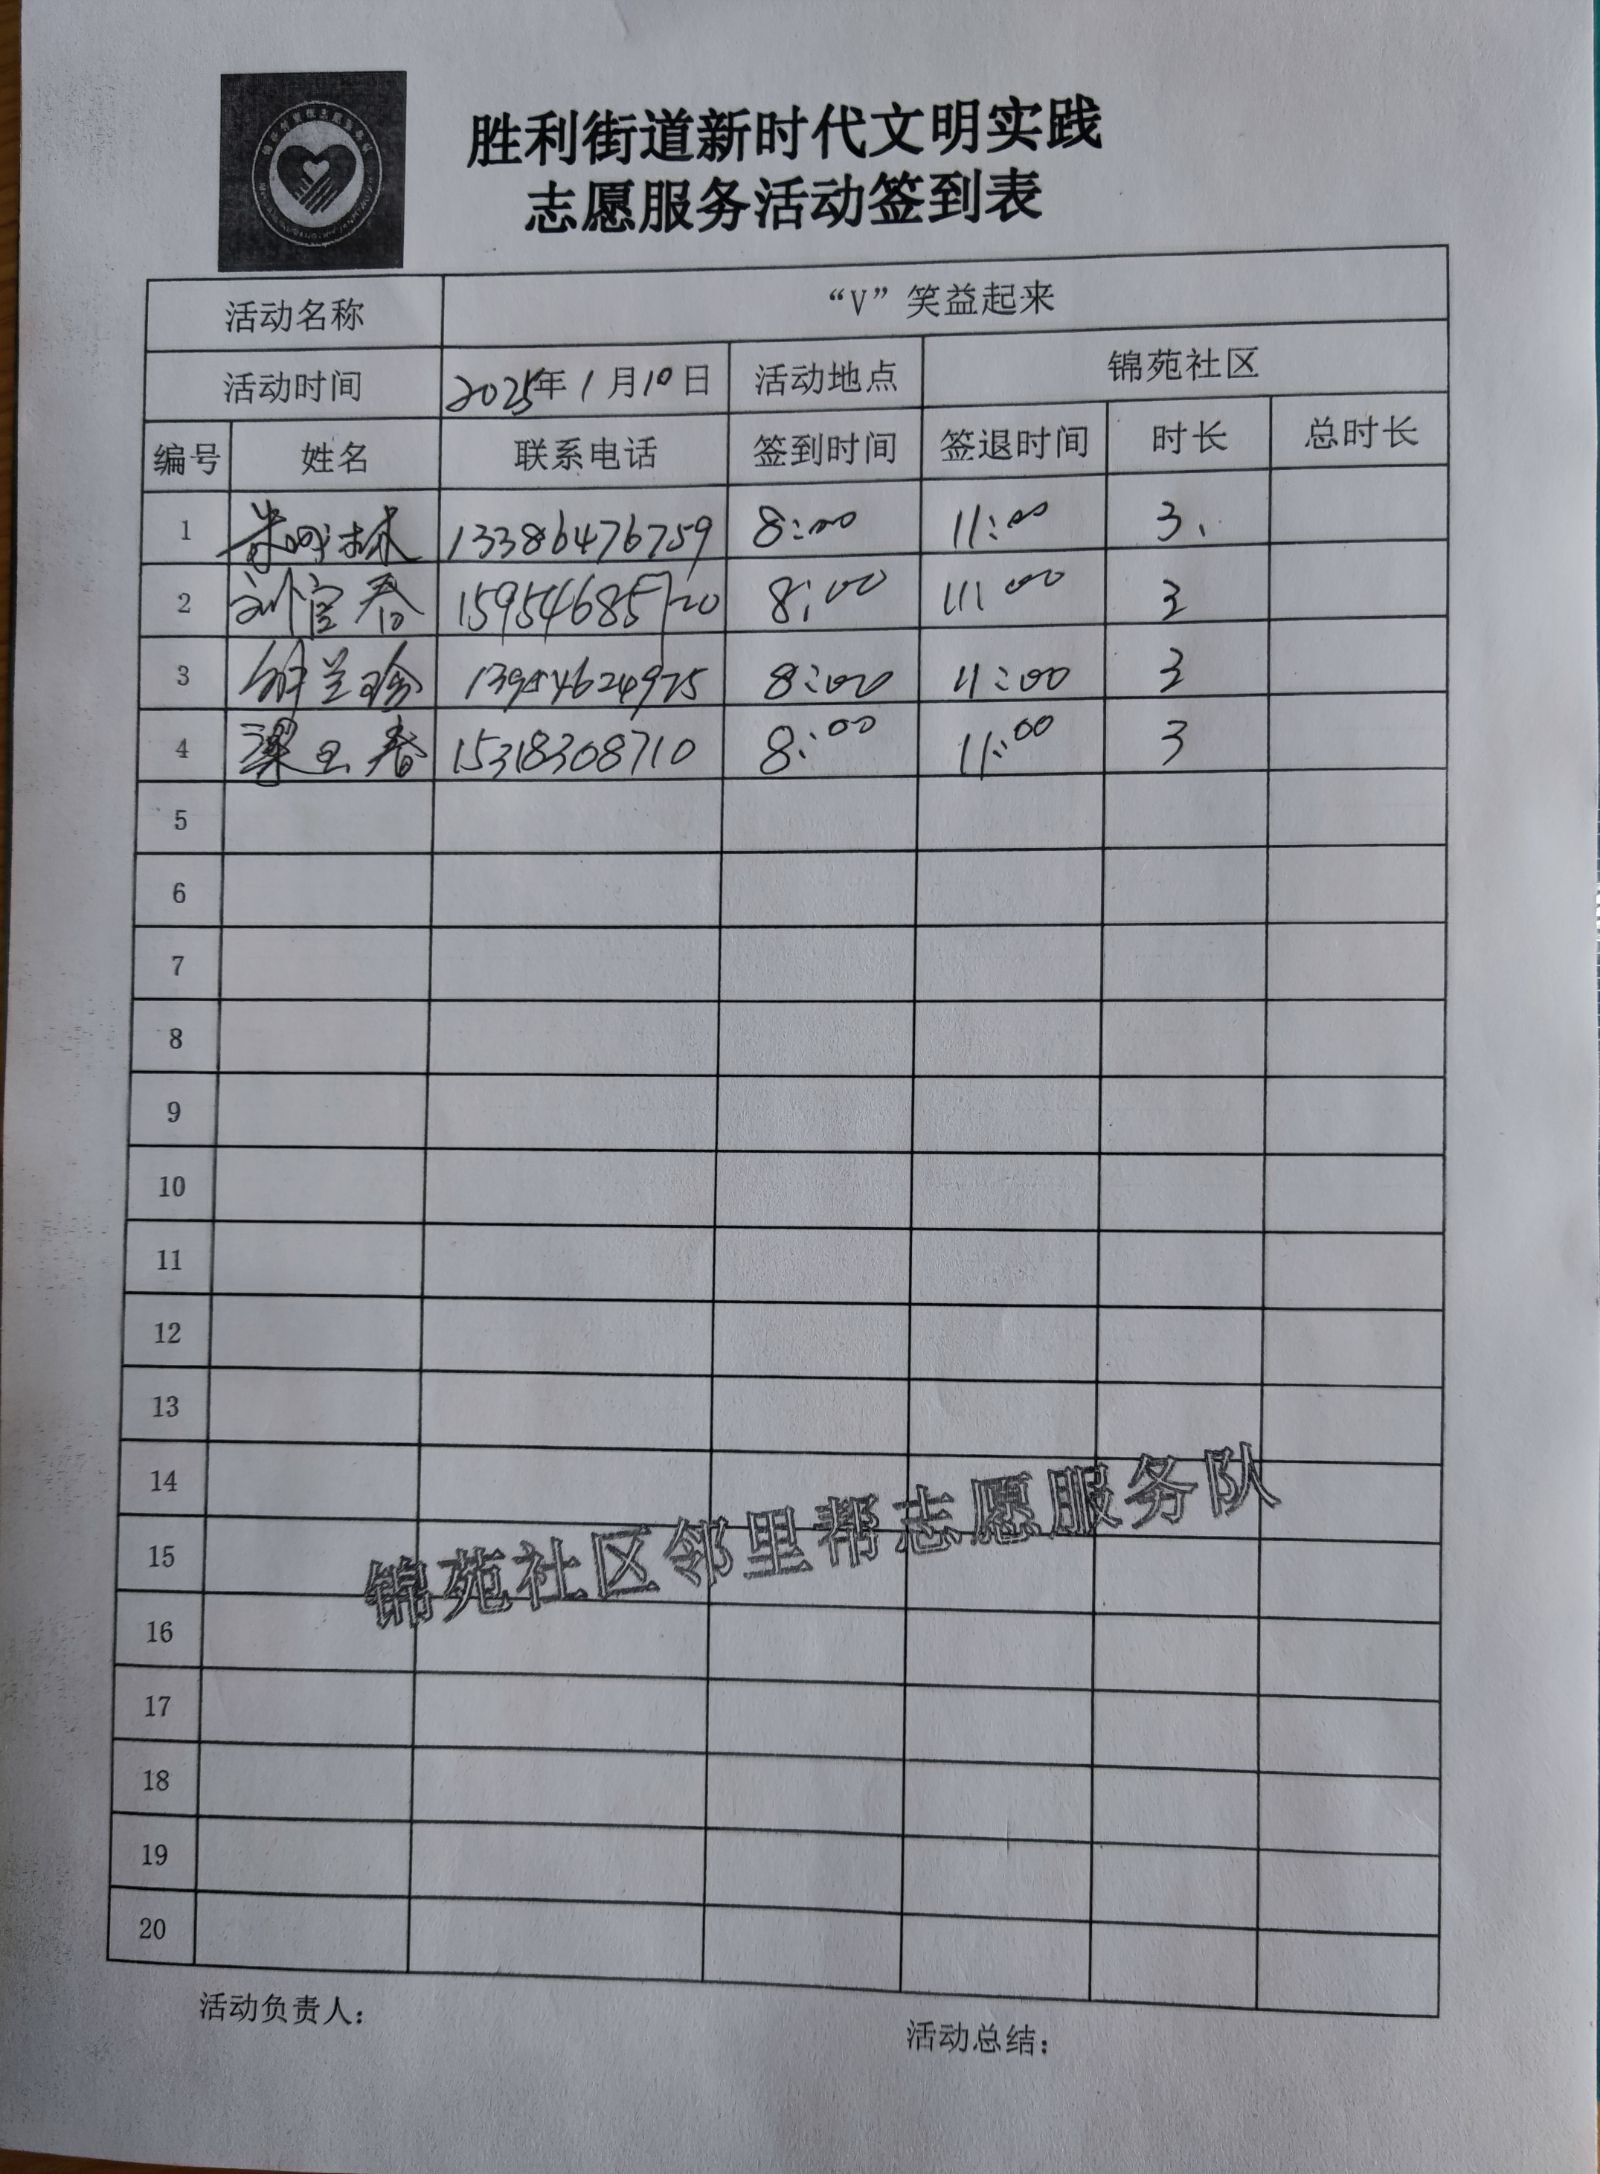 胜利街道新时代文明实践
志愿服务活动签到表
活动名称 “V”笑益起来
活动时间 2025年1月10日 活动地点 锦苑社区
编号 姓名 联系电话 签到时间 签退时间 时长 总时长
1 13386476759 8:00 11:00 3、
2 刘宦春 15954685720 8:00 11:00 3
3 兰珍 13954624975 8:00 11:00 3
4 梁玉春 15318308710 8:00 11:00 3
5
6
7
8
9
10
11
12
13
14
15
16
17
18
19
20
锦苑社区邻里帮志愿服务队
活动负责人：
活动总结：